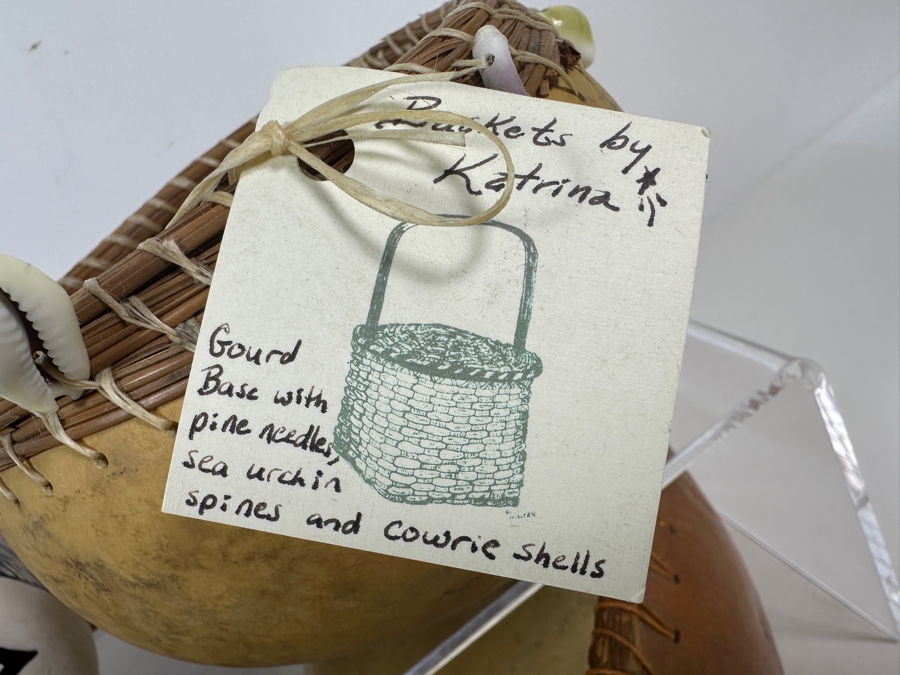 Baskets by
Katrina
Gourd
Base with
pine needles,
sea urchin
spines and cowrie shells